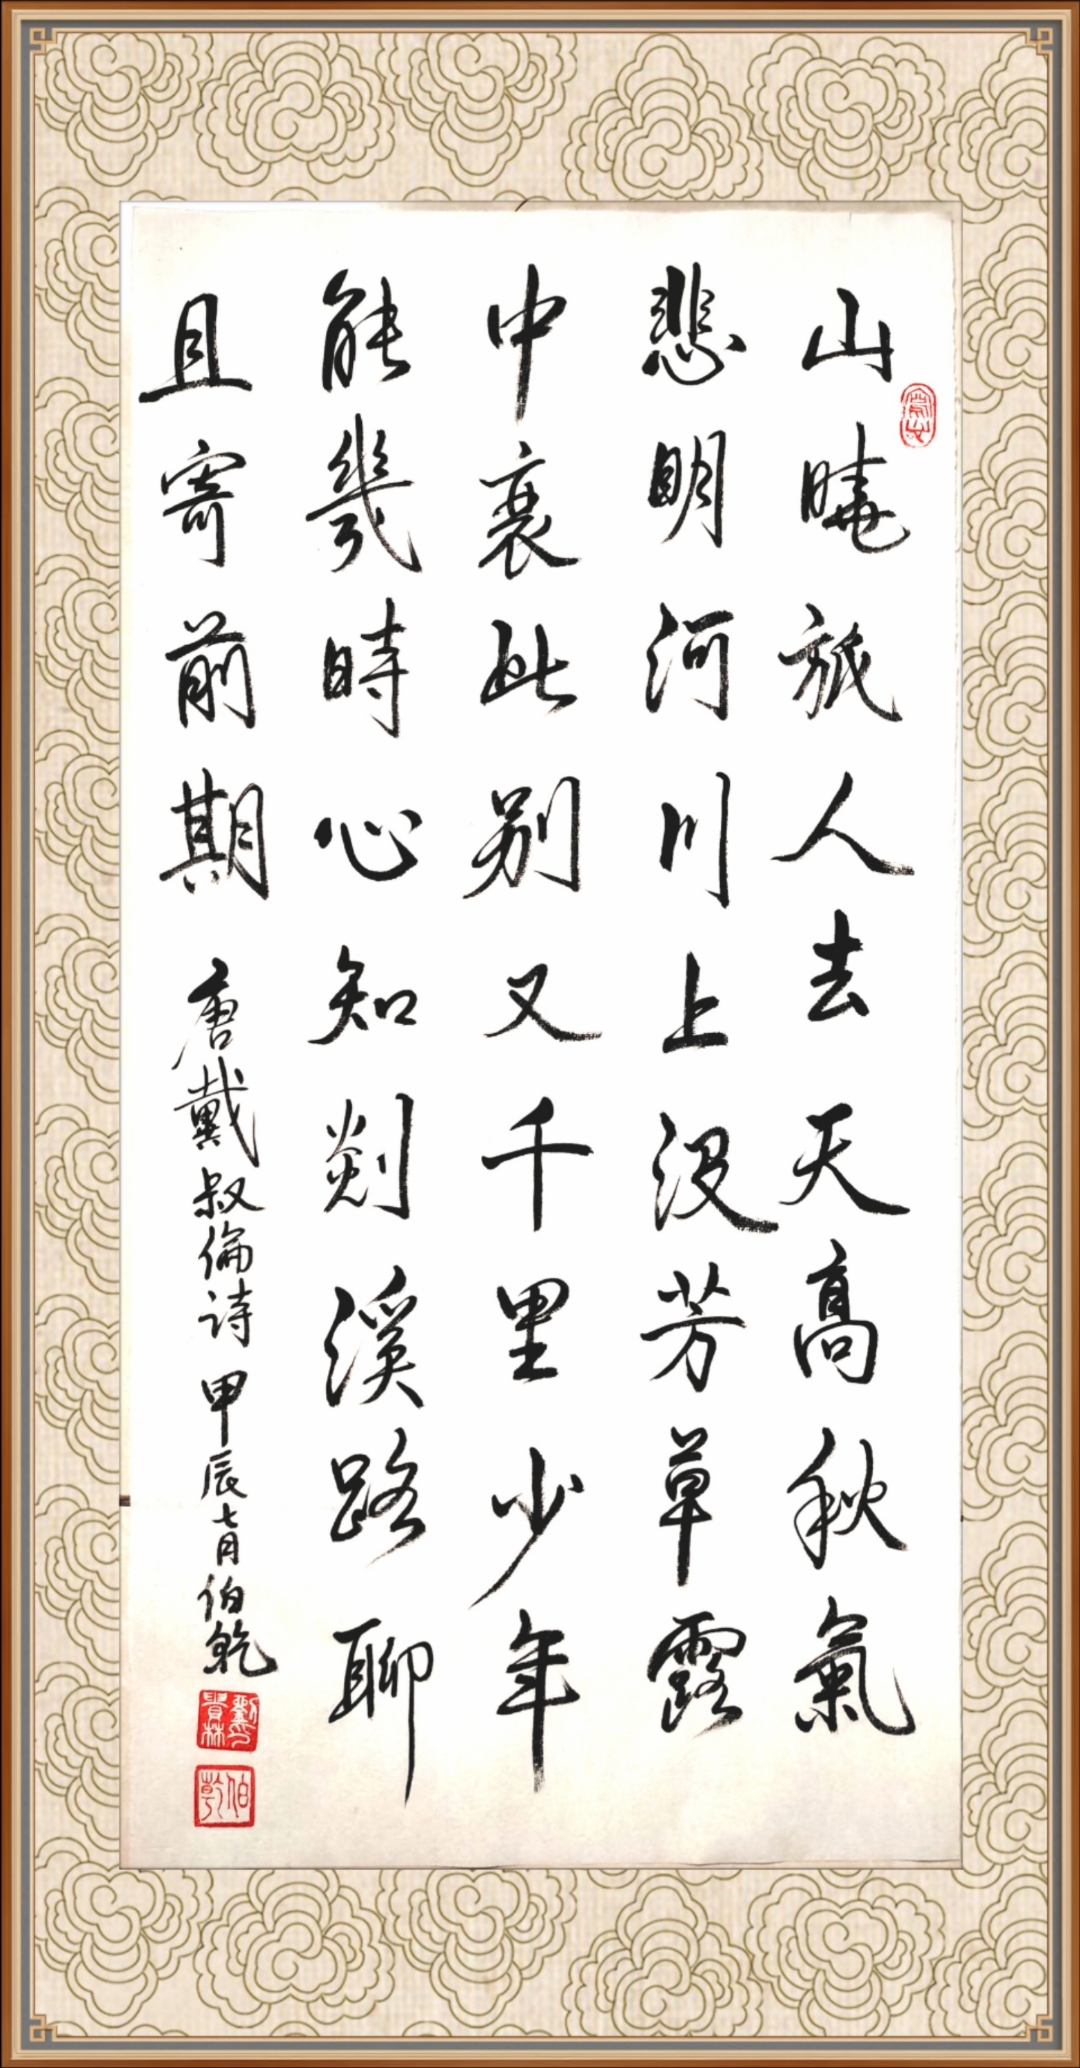 山曉旅人去天高秋氣
悲明河川上没芳草露
中衰此别又千里少年
能幾時心知剡溪路聊
且寄前期
唐戴叔倫詩甲辰七月伯乾
伯乾